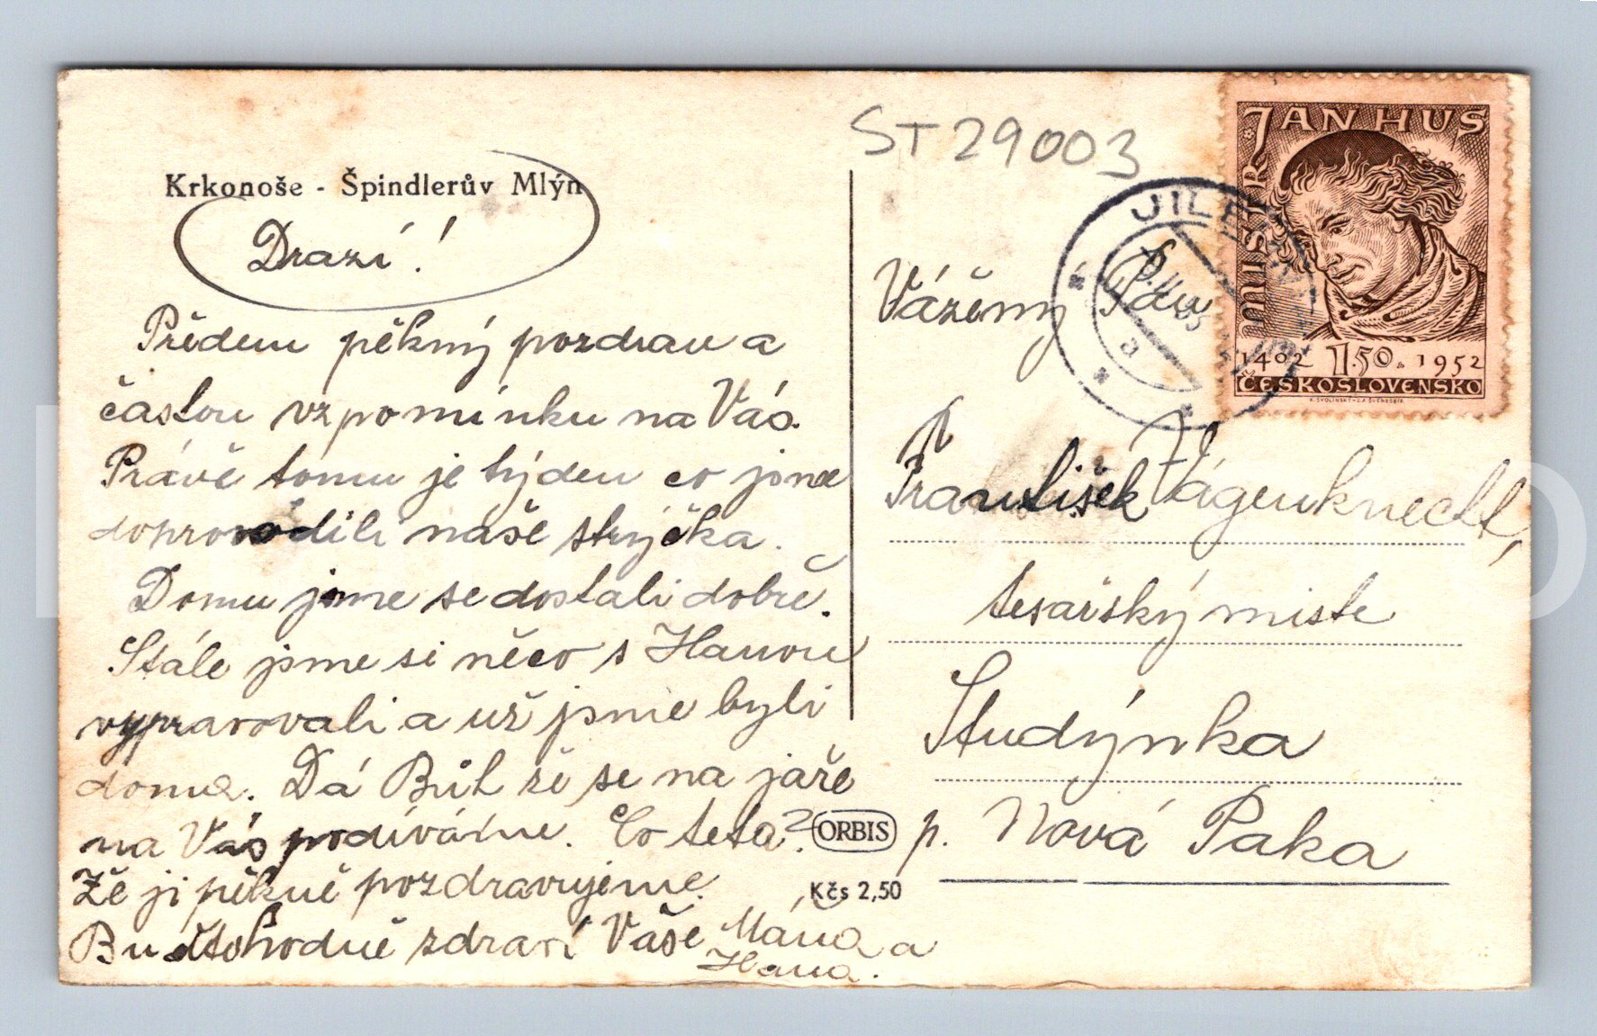 Krkonoše - Špindlerův Mlýn
Drazí!
Předem pěkný pozdrav a
častou vzpomínku na Vás.
Právě tomu je týden co jsme
doprovodili naše strýčka.
Domu jsme se dostali dobře.
Stále jsme si něco s Hanou
vypravovali a už jsme byli
doma. Dá Bůh že se na jaře
na Vás podíváme. Co teta?
Že ji pěkně pozdravujeme.
Buďtohodně zdraví Vaše Máňa a
Hana.
ORBIS
Kčs 2,50
ST 29003
JILEM
MISTR JAN HUS
1402 1.50 1952
ČESKOSLOVENSKO
Vážený Pan
František Vágenknecht,
tesařský mistr
Studýnka
p. Nová Paka